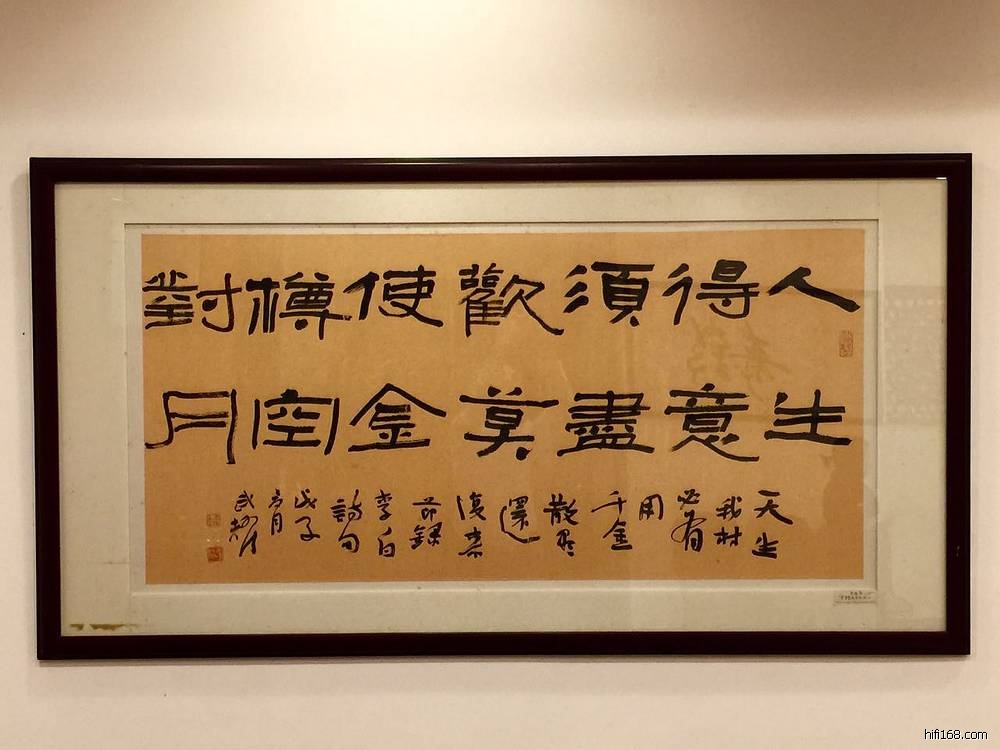 人生
得意
須盡
歡莫
使金
樽空
對月
天生
我材
必有
用
千金
散盡
還
復來
節錄
李白
詩句
戊子
月
武
hifi168.com